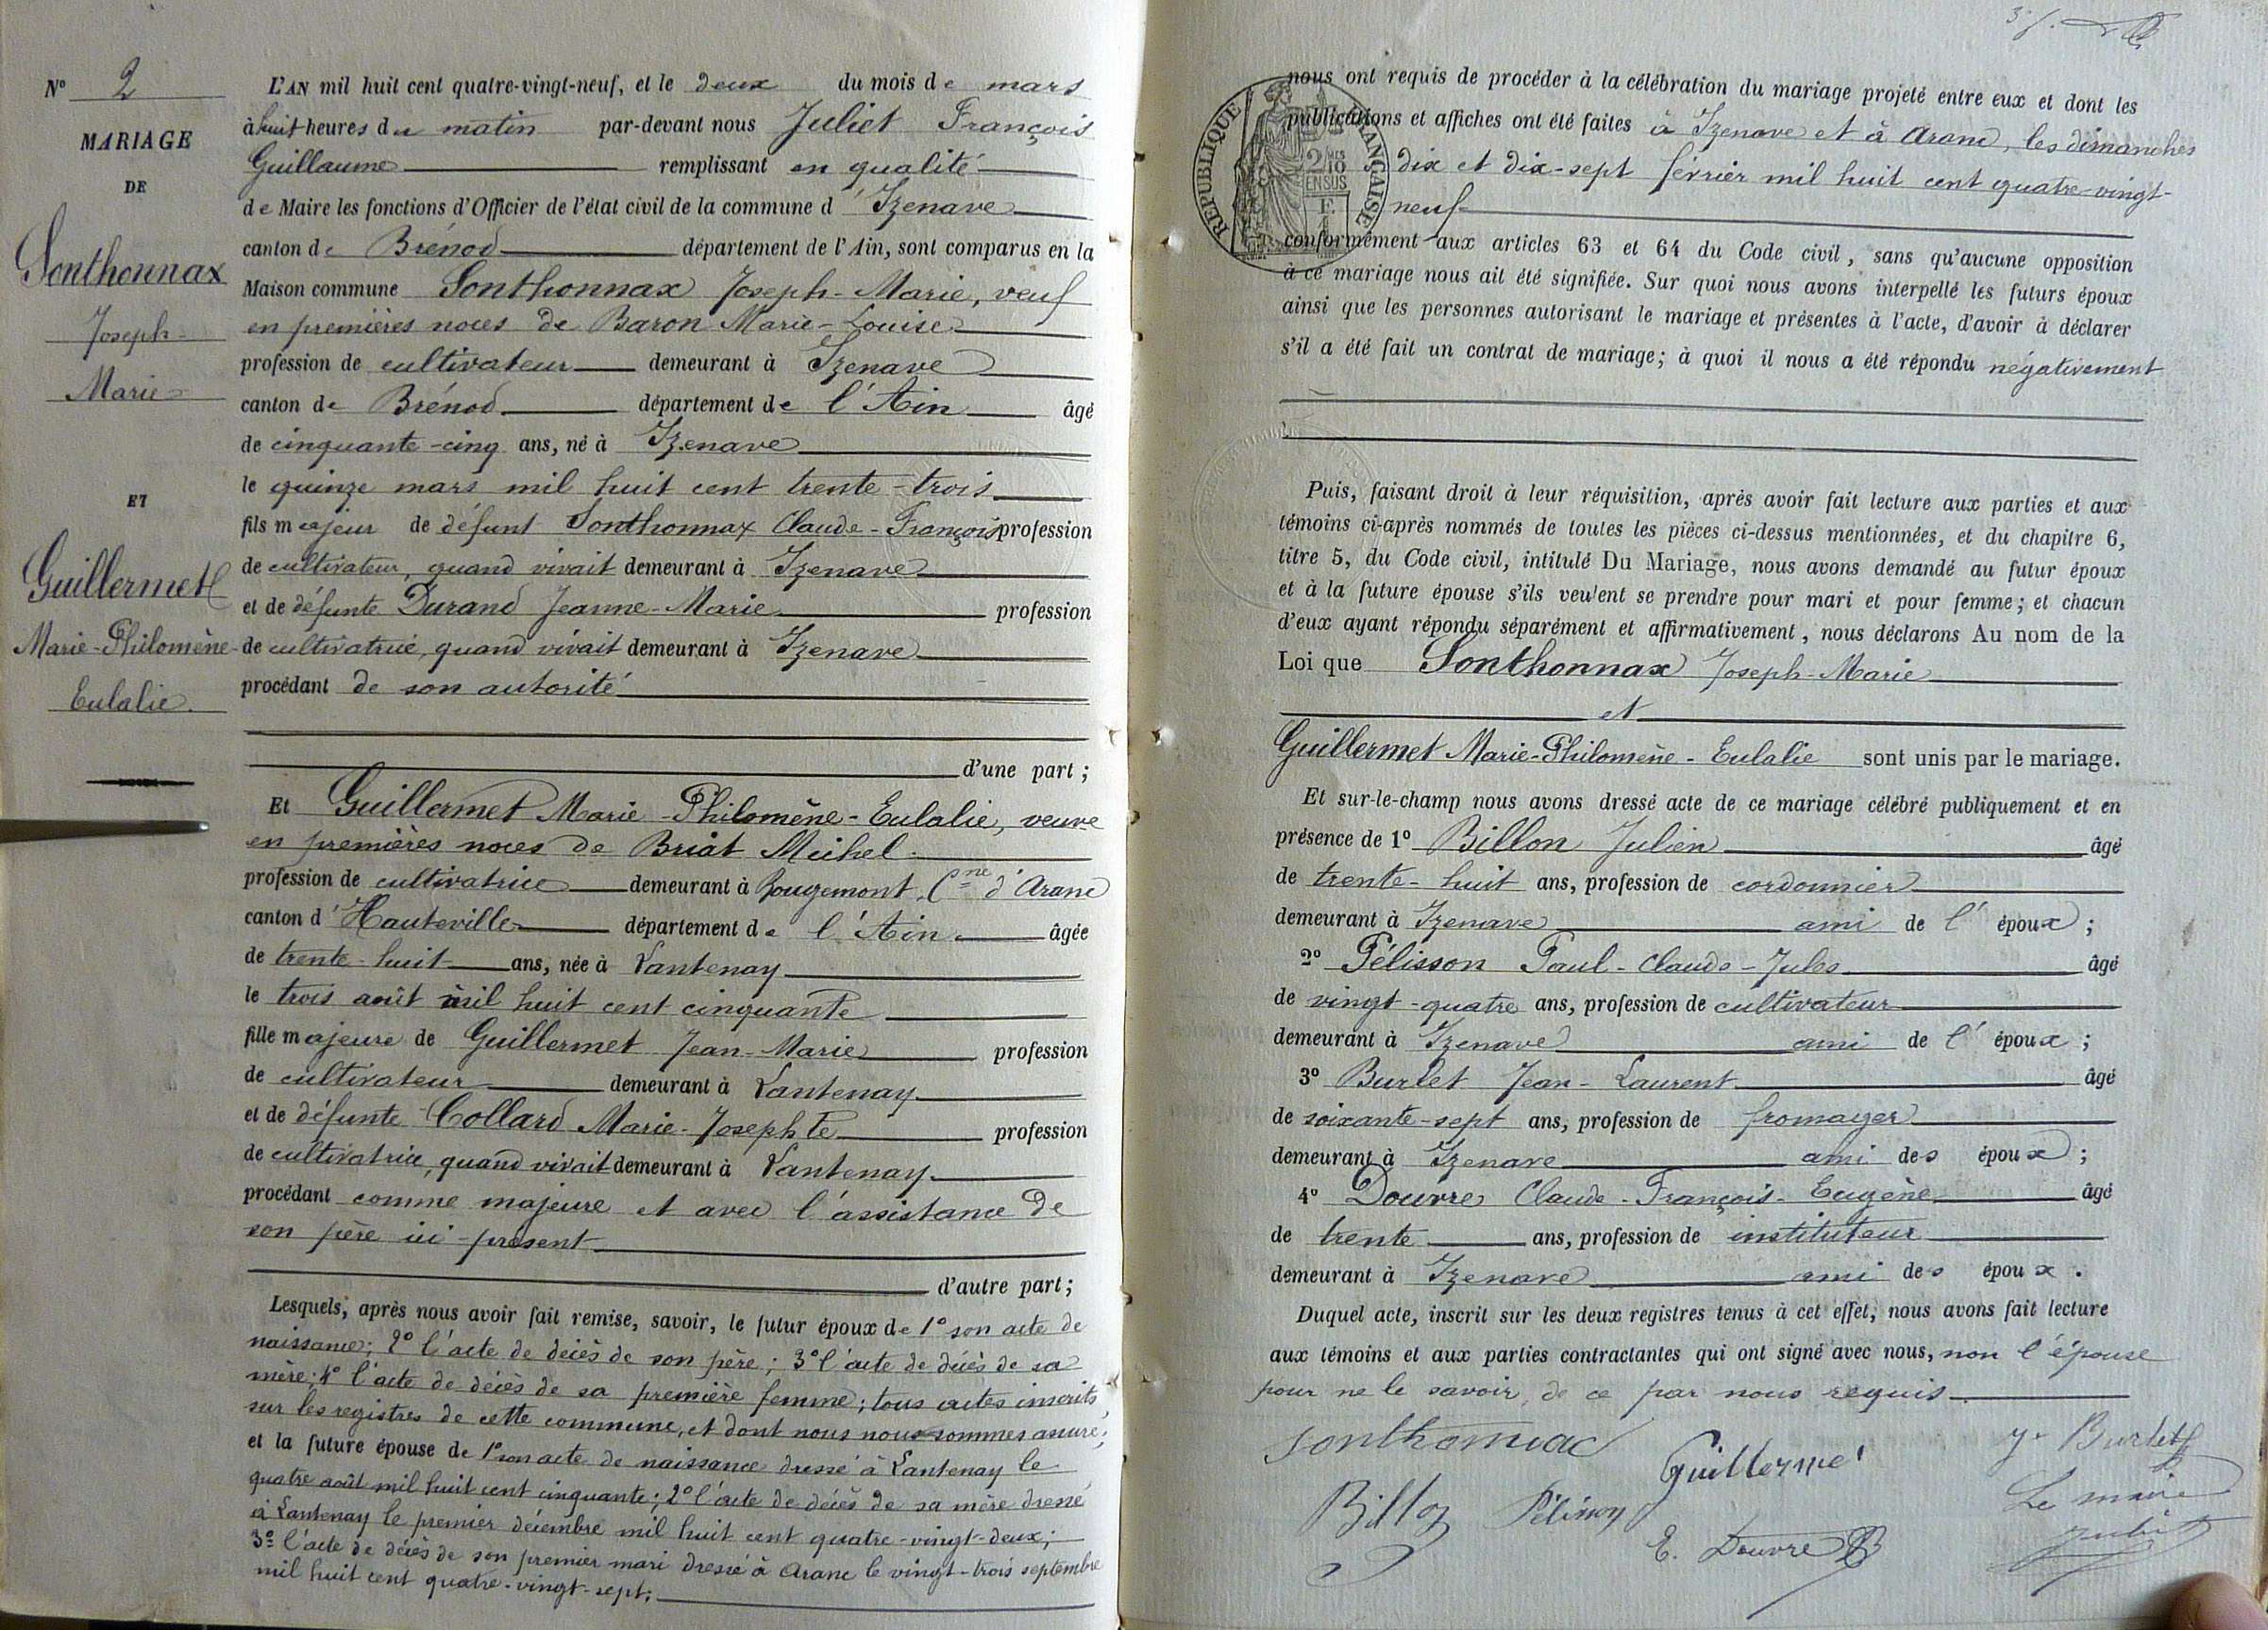 N° 2
MARIAGE
DE
Sonthonnax
Joseph-
Marie
ET
Guillermet
Marie-Philomène-
Eulalie.
L'AN mil huit cent quatre-vingt-neuf, et le deux du mois de mars
à huit heures du matin par-devant nous Juliet François
Guillaume remplissant en qualité
de Maire les fonctions d'Officier de l'état civil de la commune d'Izenave
canton de Brénod département de l'Ain, sont comparus en la
Maison commune Sonthonnax Joseph-Marie, veuf
en premières noces de Baron Marie-Louise
profession de cultivateur demeurant à Izenave
canton de Brénod département de l'Ain âgé
de cinquante-cinq ans, né à Izenave
le quinze mars mil huit cent trente-trois
fils majeur de défunt Sonthonnax Claude-François profession
de cultivateur, quand vivait demeurant à Izenave
et de défunte Durand Jeanne-Marie profession
de cultivatrice, quand vivait demeurant à Izenave
procédant de son autorité
d'une part ;
Et Guillermet Marie-Philomène-Eulalie, veuve
en premières noces de Briat Michel
profession de cultivatrice demeurant à Rougemont, Cne d'Aranc
canton d'Hauteville département de l'Ain âgée
de trente-huit ans, née à Lantenay
le trois août mil huit cent cinquante
fille majeure de Guillermet Jean-Marie profession
de cultivateur demeurant à Lantenay
et de défunte Collard Marie-Josephte profession
de cultivatrice, quand vivait demeurant à Lantenay
procédant comme majeure et avec l'assistance de
son père ici-présent
d'autre part ;
Lesquels, après nous avoir fait remise, savoir, le futur époux de 1° son acte de
naissance ; 2° l'acte de décès de son père ; 3° l'acte de décès de sa
mère ; 4° l'acte de décès de sa première femme ; tous actes inscrits
sur les registres de cette commune, et dont nous nous sommes assuré ;
et la future épouse de 1° son acte de naissance dressé à Lantenay le
quatre août mil huit cent cinquante ; 2° l'acte de décès de sa mère dressé
à Lantenay le premier décembre mil huit cent quatre-vingt-deux ;
3° l'acte de décès de son premier mari dressé à Aranc le vingt-trois septembre
mil huit cent quatre-vingt-sept ;
nous ont requis de procéder à la célébration du mariage projeté entre eux et dont les
publications et affiches ont été faites à Izenave et à Aranc, les dimanches
dix et dix-sept février mil huit cent quatre-vingt-
neuf
REPUBLIQUE FRANÇAISE
2/10
EN SUS
conformément aux articles 63 et 64 du Code civil, sans qu'aucune opposition
à ce mariage nous ait été signifiée. Sur quoi nous avons interpellé les futurs époux
ainsi que les personnes autorisant le mariage et présentes à l'acte, d'avoir à déclarer
s'il a été fait un contrat de mariage ; à quoi il nous a été répondu négativement
Puis, faisant droit à leur réquisition, après avoir fait lecture aux parties et aux
témoins ci-après nommés de toutes les pièces ci-dessus mentionnées, et du chapitre 6,
titre 5, du Code civil, intitulé Du Mariage, nous avons demandé au futur époux
et à la future épouse s'ils veulent se prendre pour mari et pour femme ; et chacun
d'eux ayant répondu séparément et affirmativement, nous déclarons Au nom de la
Loi que Sonthonnax Joseph-Marie
et
Guillermet Marie-Philomène-Eulalie sont unis par le mariage.
Et sur-le-champ nous avons dressé acte de ce mariage célébré publiquement et en
présence de 1° Billon Julien âgé
de trente-huit ans, profession de cordonnier
demeurant à Izenave ami de l'époux ;
2° Pélisson Paul-Claude-Jules âgé
de vingt-quatre ans, profession de cultivateur
demeurant à Izenave ami de l'époux ;
3° Burlet Jean-Laurent âgé
de soixante-sept ans, profession de fromager
demeurant à Izenave ami des époux ;
4° Douvre Claude-François-Eugène âgé
de trente ans, profession de instituteur
demeurant à Izenave ami des époux.
Duquel acte, inscrit sur les deux registres tenus à cet effet, nous avons fait lecture
aux témoins et aux parties contractantes qui ont signé avec nous, non l'épouse
pour ne le savoir, de ce par nous requis
Sonthonnac Guillermé Jn Burlet
Billon Pélisson Le maire
E. Douvre Juliet